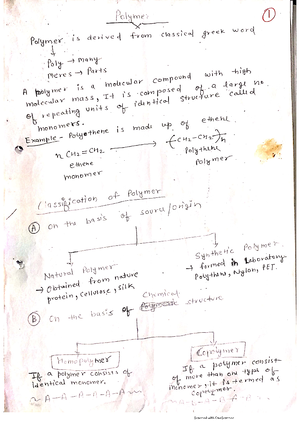 Polymer
1
Polymer is derived from classical greek word
Poly → many
Meres → Parts
A polymer is a molecular compound with high
molecular mass, It is composed of a large no.
of repeating units of identical structure called
monomers.
Example - Polyethene is made up of ethene
n CH2=CH2 → -(CH2-CH2-)n
ethene Polythene
monomer Polymer
Classification of Polymer
(A) On the basis of source/origin
Natural Polymer
→ Obtained from nature
protein, Cellulose, Silk,
Synthetic Polymer
→ formed in Laboratory
Polythene, Nylon, PET.
Chemical
(B) On the basis of structure
Homopolymer
If a polymer consists of
identical monomer.
~ A-A-A-A-A-A~
Copolymer
If a polymer consist
of more than one type of
monomer, it is termed as
Copolymer.